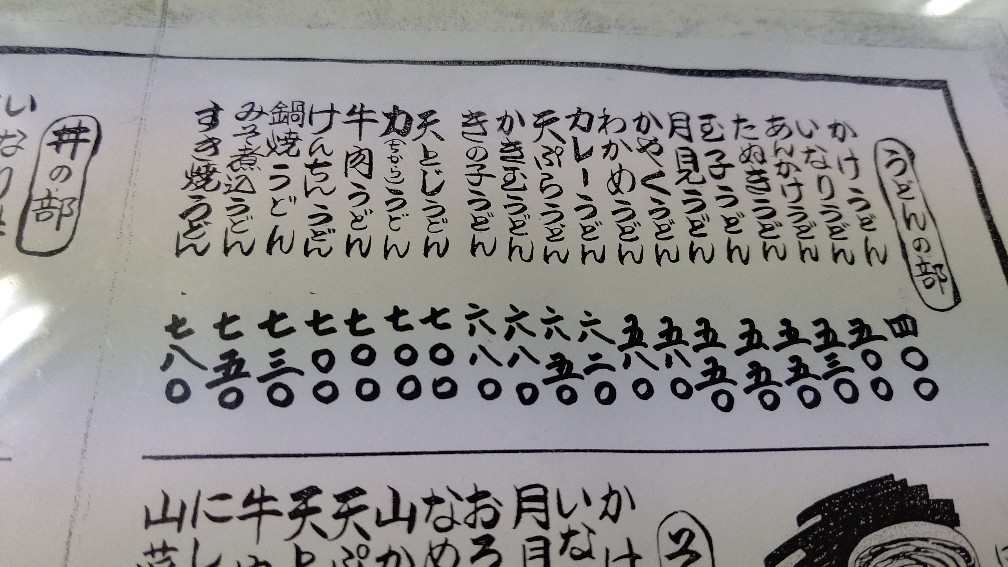 うどんの部
かけうどん 四〇〇
いなりうどん 五〇〇
あんかけうどん 五三〇
たぬきうどん 五五〇
玉子うどん 五五〇
月見うどん 五五〇
かやくうどん 五八〇
わかめうどん 五八〇
カレーうどん 六二〇
天ぷらうどん 六五〇
かき玉うどん 六八〇
きの子うどん 六八〇
天とじうどん 七〇〇
力(ちから)うどん 七〇〇
牛肉うどん 七〇〇
けんちんうどん 七〇〇
鍋焼うどん 七三〇
みそ煮込うどん 七五〇
すき焼うどん 七八〇
丼の部
いなり
かけ
いな
月
おろ
なめ
山か
天ぷ
天と
牛
にし
山菜